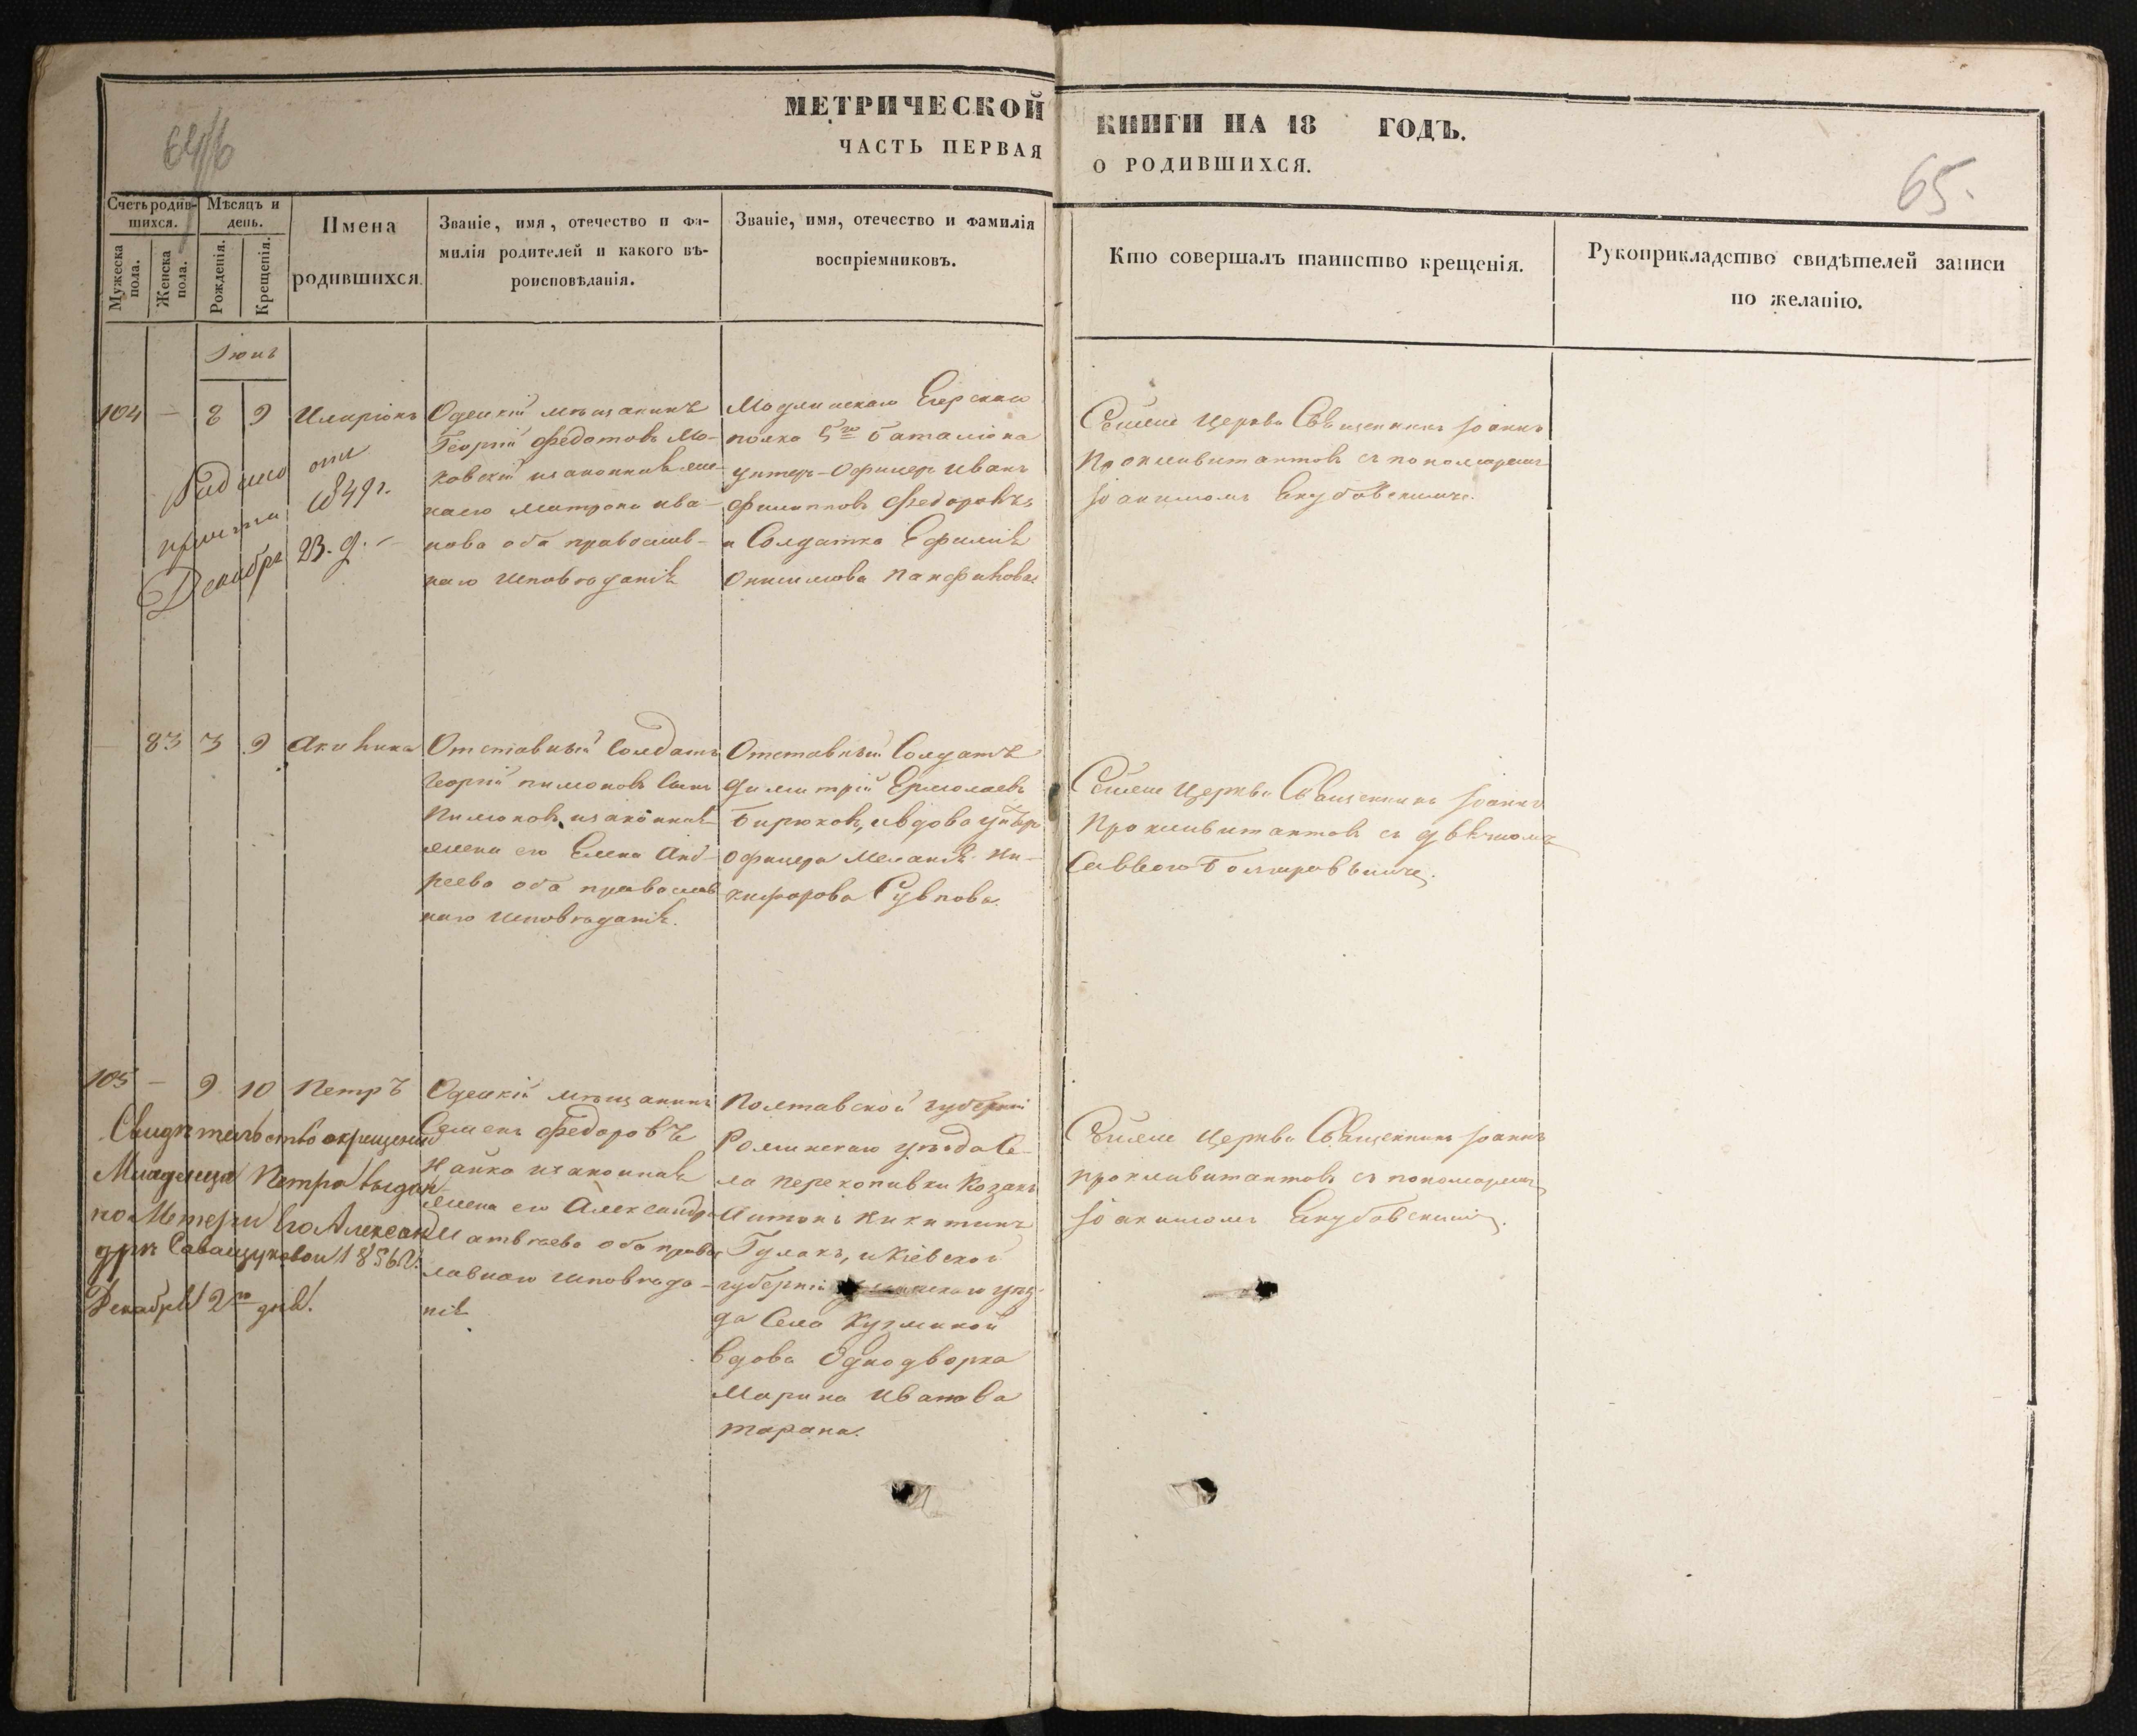 МЕТРИЧЕСКОЙ КНИГИ НА 18 ГОДЪ.
ЧАСТЬ ПЕРВАЯ О РОДИВШИХСЯ.
65.
Счетъ родив-
шихся.
Мужеска пола.
Женска пола.
Мѣсяцъ и
день.
Рожденія.
Крещенія.
Имена
родившихся.
Званіе, имя, отечество и фа-
милія родителей и какого вѣ-
роисповѣданія.
Званіе, имя, отечество и фамилія
воспріемниковъ.
Кто совершалъ таинство крещенія.
Рукоприкладство свидѣтелей записи
по желанію.
Іюнь
104 — 8 9 Иларіонъ
Одескій мѣщанинъ
Георгій Федотовъ Мо-
ковскій и законная же-
на его Матрона Ива-
нова оба православ-
наго исповѣданія
Модлинскаго Егерскаго
полка 5го баталіона
унтеръ-Офицеръ Иванъ
Филипповъ Федоровъ
и Солдатка Ефимія
Онисимова Панфилова.
Церкви Священникъ Іоаннъ
съ пономаремъ
Іоакимомъ Якубовскимъ.
1849 г.
Декабря 23. д. –
— 83 3 9 Акилина
Отставный Солдатъ
Георгій Пимоновъ Сынъ
Пимоновъ, и законная
жена его Елена Анд-
реева оба православ
наго исповѣданія.
Отставный Солдатъ
Димитрій Ермолаевъ
Бирюковъ, и вдова унтеръ
офицера Меланія Ни-
кифорова
Церкви Священникъ Іоаннъ
съ дьячкомъ
Саввою
105 — 9 10 Петръ
Одескій мѣщанинъ
Семенъ Федоровъ
Чайка и законная
жена его Александра
Матвѣева оба правос
лавнаго исповѣда-
нія
Полтавской губерніи
Роменскаго уѣзда Се-
ла Перекоповки Козакъ
Антонъ Никитинъ
Гулакъ, и Кіевской
губерніи уѣз-
да Села Кузминой
вдова Однодворка
Марина Иванова
Тарана.
Церкви Священникъ Іоаннъ
съ пономаремъ
Іоакимомъ Якубовскимъ.
Свидѣтельство о крещеніи
Младенца Петра выдано
Матери Его Алексан
дрѣ Саващуковой 1856 г.
Декабря 2го дня.